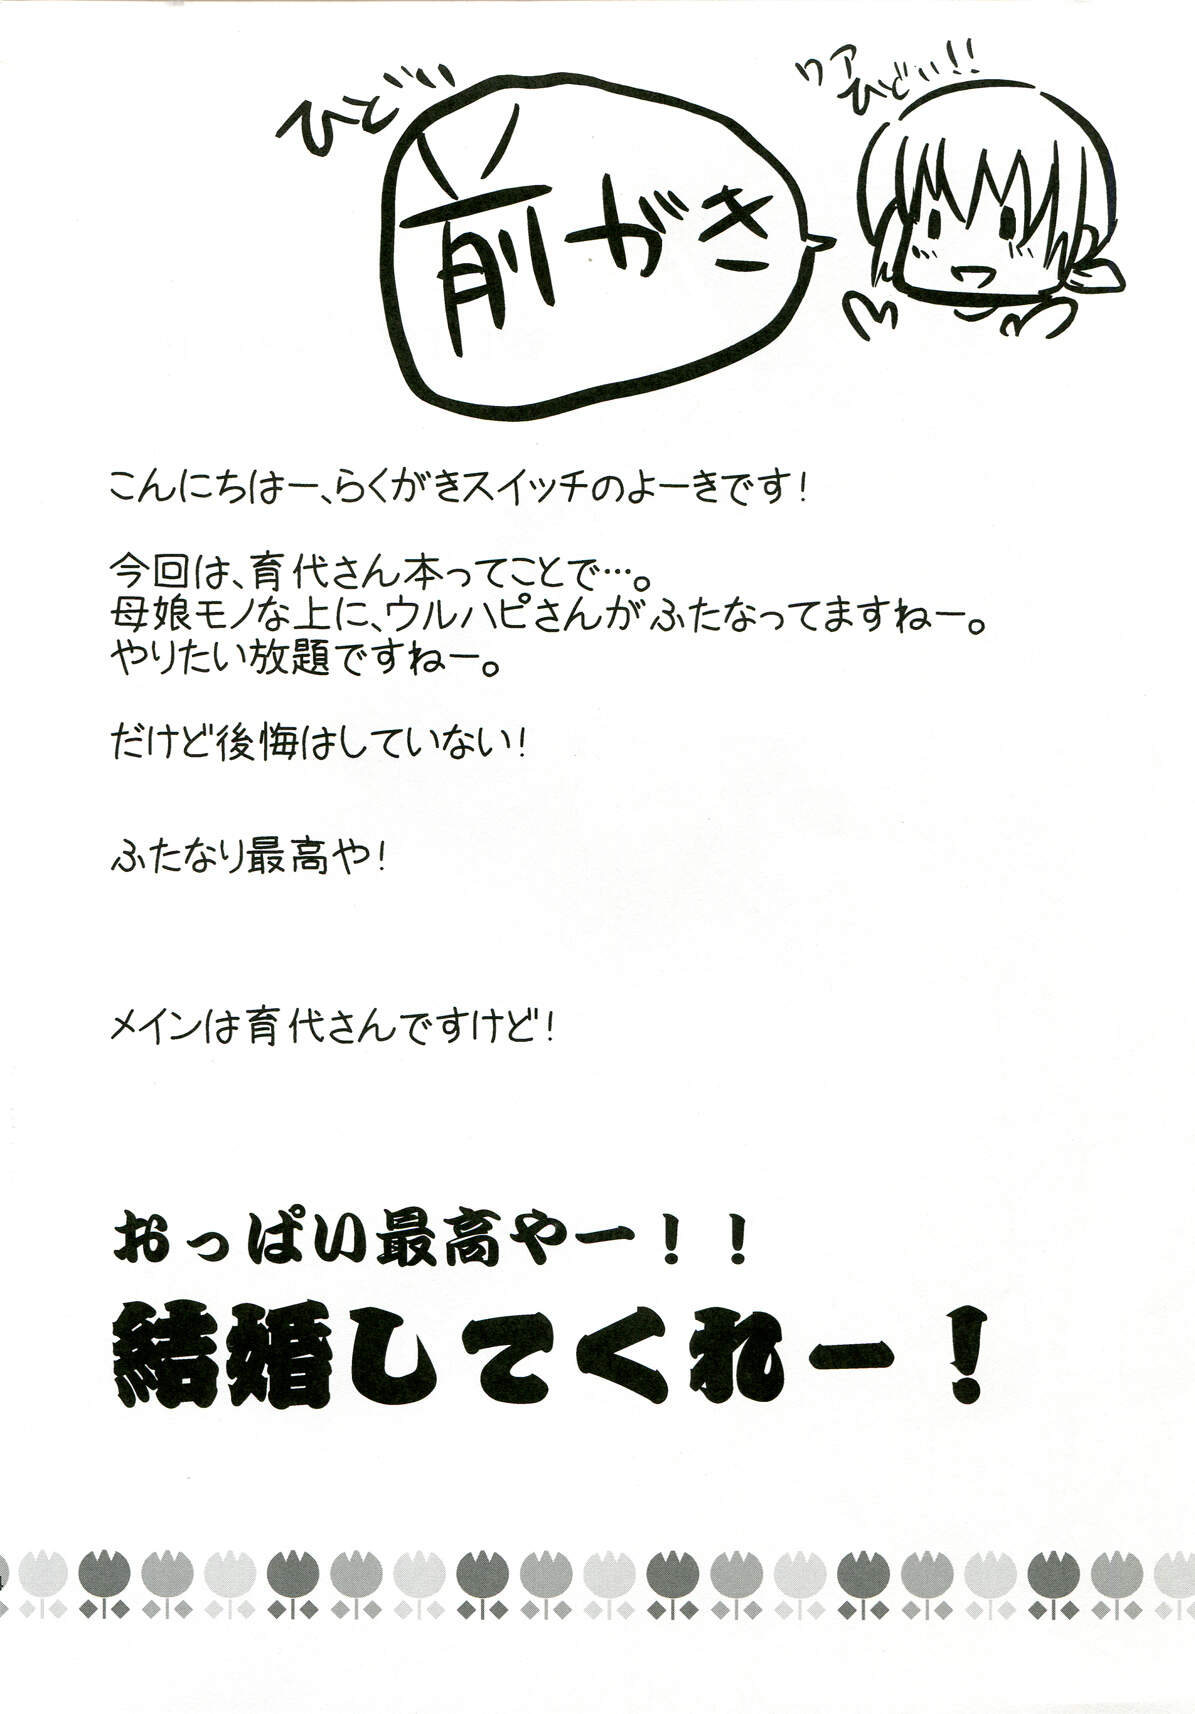 ひどい
前がき
ワァ
ひどい!!
こんにちはー、らくがきスイッチのよーきです!
今回は、育代さん本ってことで…。
母娘モノな上に、ウルハピさんがふたなってますねー。
やりたい放題ですねー。
だけど後悔はしていない!
ふたなり最高や!
メインは育代さんですけど!
おっぱい最高やー!!
結婚してくれー!
4